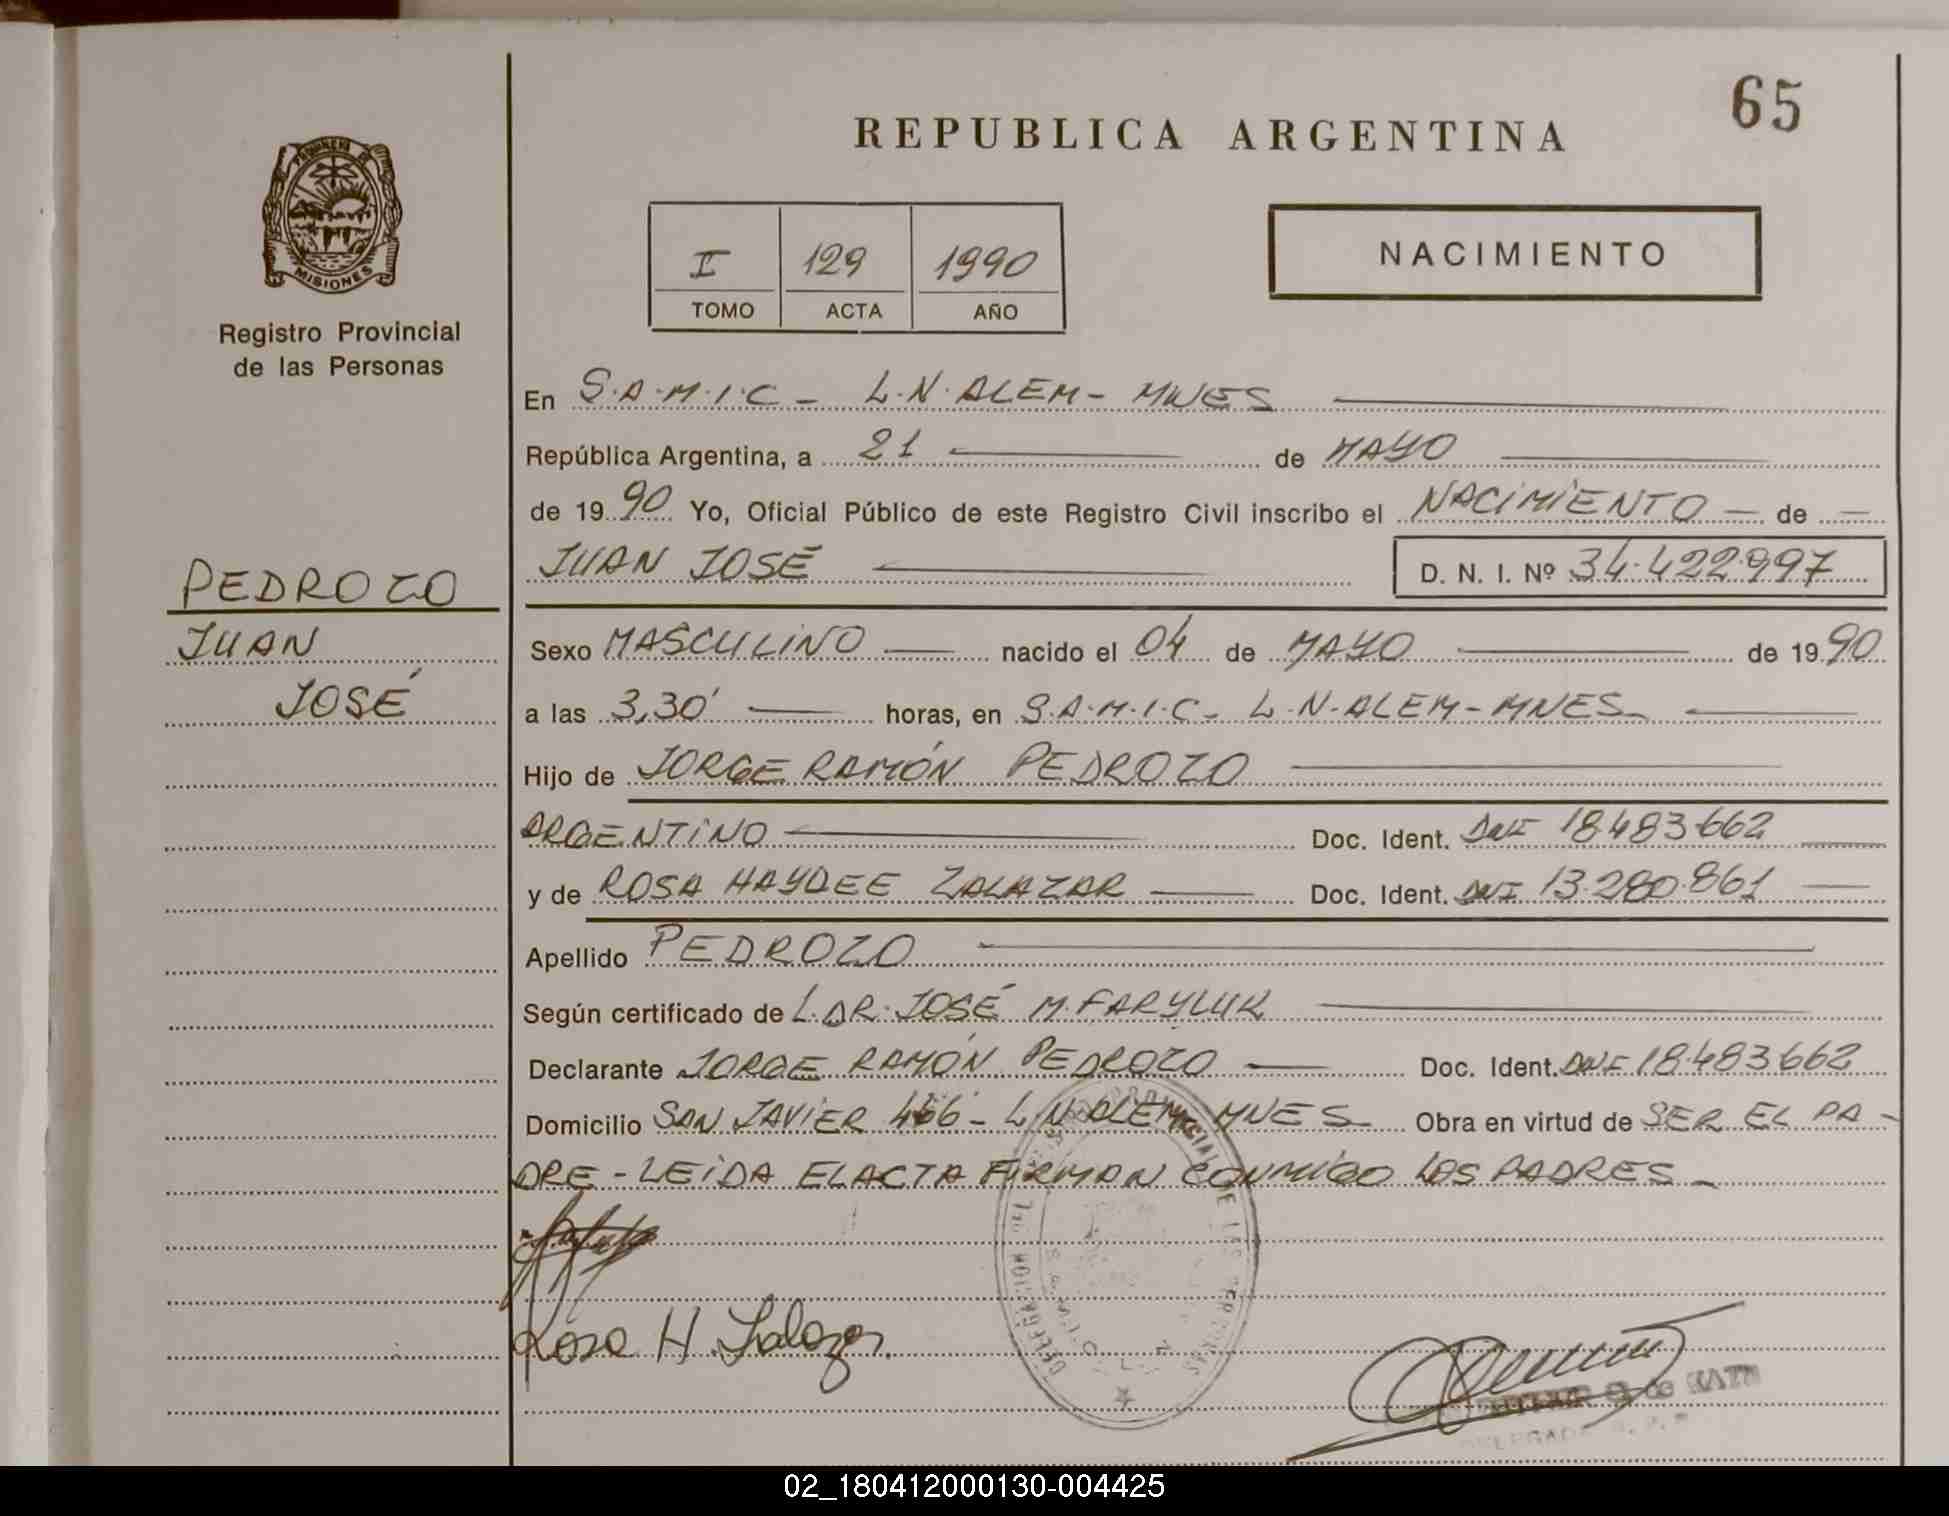 65
REPUBLICA ARGENTINA
PROVINCIA DE
MISIONES
Registro Provincial
de las Personas
I 129 1990
TOMO ACTA AÑO
NACIMIENTO
En S.A.M.I.C - L.N. ALEM - MNES
República Argentina, a 21 de MAYO
de 1990 Yo, Oficial Público de este Registro Civil inscribo el NACIMIENTO de
JUAN JOSÉ D. N. I. Nº 34.422.997
PEDROZO
JUAN
JOSÉ
Sexo MASCULINO nacido el 04 de MAYO de 1990
a las 3,30' horas, en S.A.M.I.C - L.N. ALEM - MNES
Hijo de JORGE RAMÓN PEDROZO
ARGENTINO Doc. Ident. DNI 18.483.662
y de ROSA HAYDEE ZALAZAR Doc. Ident. DNI 13.280.861
Apellido PEDROZO
Según certificado de L. DR. JOSÉ M. FARYLUK
Declarante JORGE RAMÓN PEDROZO Doc. Ident. DNI 18.483.662
Domicilio SAN JAVIER 466 - L.N. ALEM MNES Obra en virtud de SER EL PA-
DRE - LEIDA EL ACTA FIRMAN CONMIGO LOS PADRES -
DELEGACION DEL PROVINCIAL DE LAS PERSONAS
Rosa H. Zalazar
02_180412000130-004425